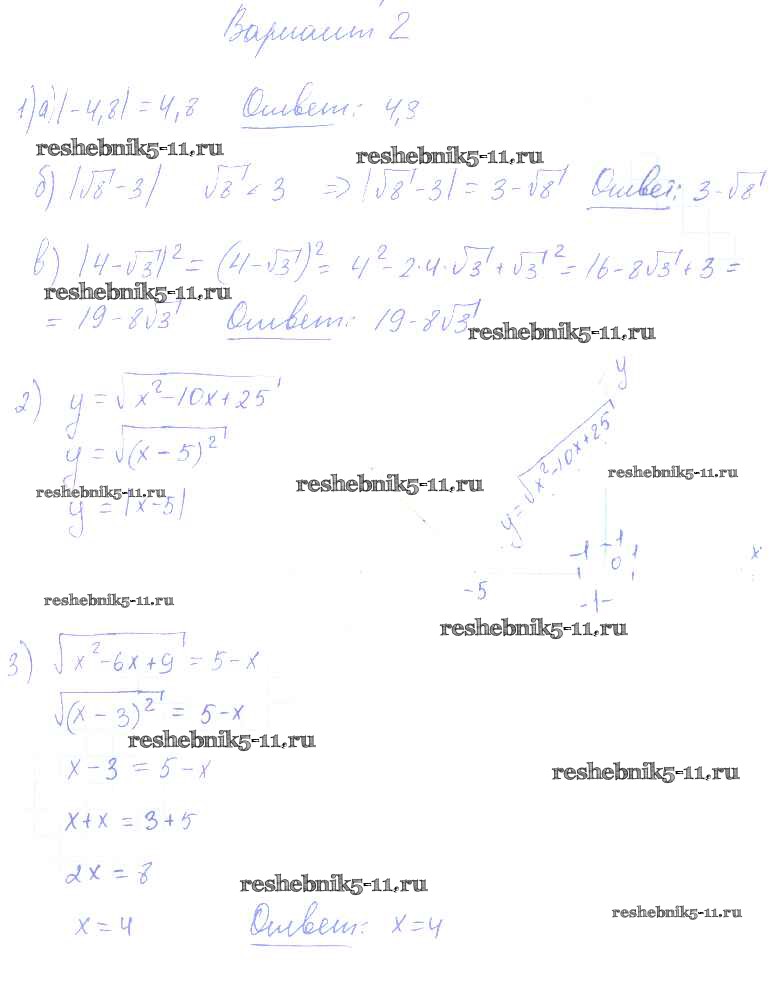 Вариант 2
1) а) |-4,8| = 4,8 Ответ: 4,8
reshebnik5-11.ru reshebnik5-11.ru
б) |√8 - 3| √8 < 3 ⇒ |√8 - 3| = 3 - √8 Ответ: 3 - √8
в) |4 - √3|² = (4 - √3)² = 4² - 2·4·√3 + √3² = 16 - 8√3 + 3 =
reshebnik5-11.ru
= 19 - 8√3 Ответ: 19 - 8√3
reshebnik5-11.ru
2) y = √(x² - 10x + 25)
y = √((x - 5)²)
y = |x - 5|
reshebnik5-11.ru reshebnik5-11.ru reshebnik5-11.ru
y
y = √(x² - 10x + 25)
-1 1 1
0 x
-5 -1
reshebnik5-11.ru reshebnik5-11.ru
3) √(x² - 6x + 9) = 5 - x
√((x - 3)²) = 5 - x
reshebnik5-11.ru
x - 3 = 5 - x
reshebnik5-11.ru
x + x = 3 + 5
2x = 8
reshebnik5-11.ru
x = 4 Ответ: x = 4
reshebnik5-11.ru